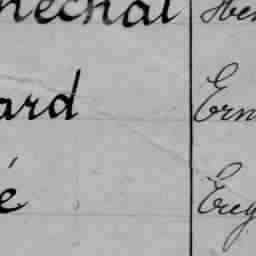 néchal Hen
ard Ern
é Eug